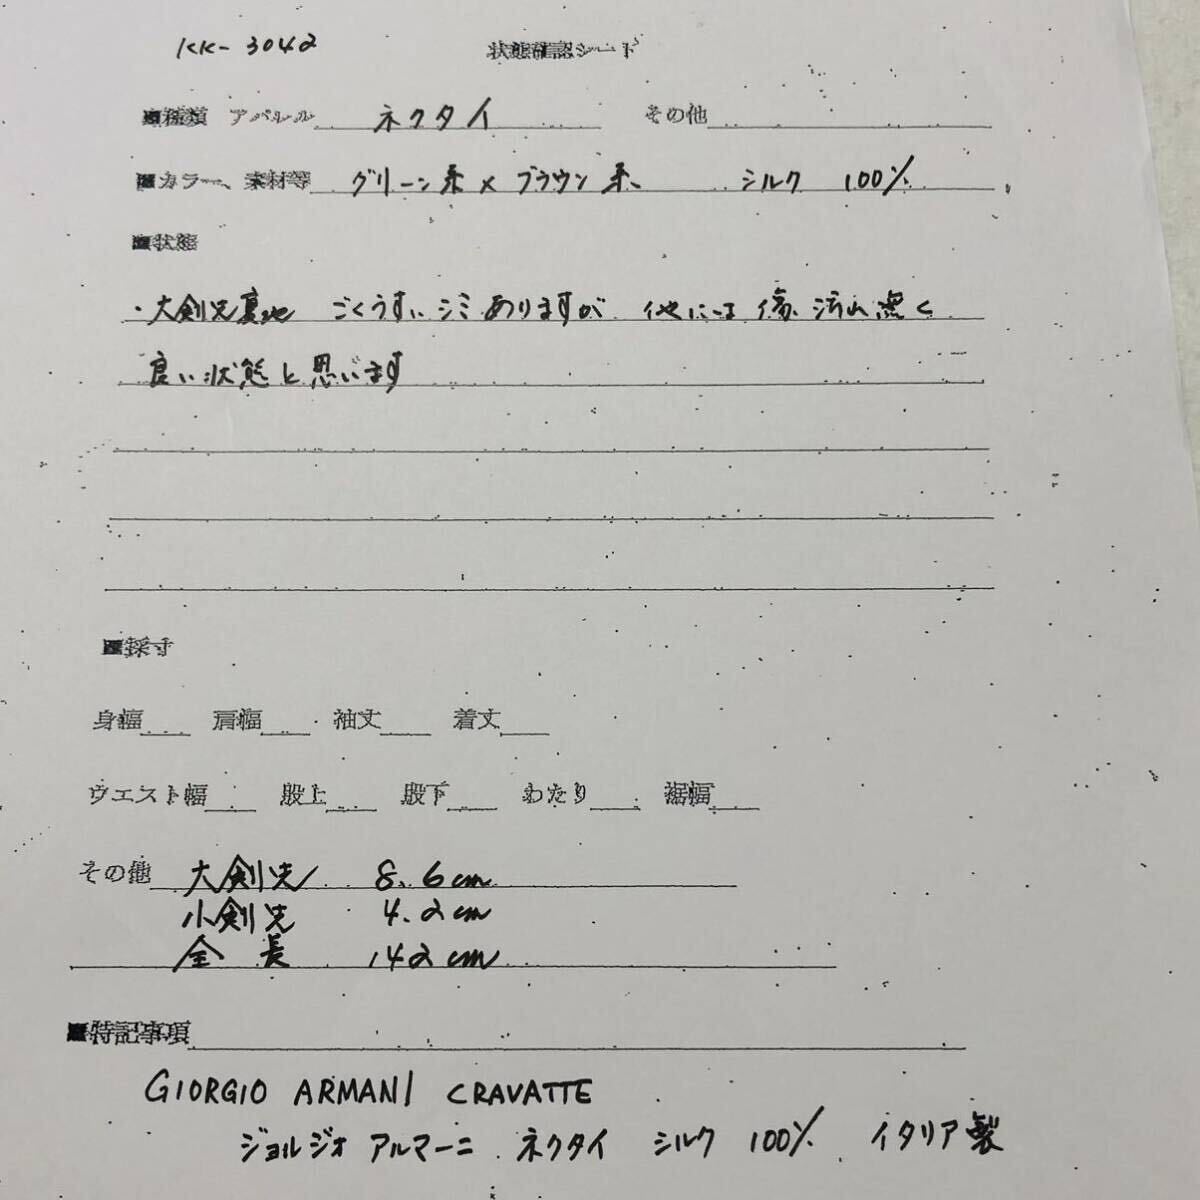 KK-3042 状態確認シート
■種類 アパレル ネクタイ その他
■カラー、素材等 グリーン系×ブラウン系、 シルク 100%
■状態
・大剣先裏地 ごくうすいシミありますが 他には傷、汚れ無く
良い状態と思います
■採寸
身幅 肩幅 袖丈 着丈
ウエスト幅 股上 股下 わたり 裾幅
その他 大剣先 8.6cm
小剣先 4.2cm
全長 142cm
■特記事項
GIORGIO ARMANI CRAVATTE
ジョルジオ アルマーニ ネクタイ シルク 100% イタリア製